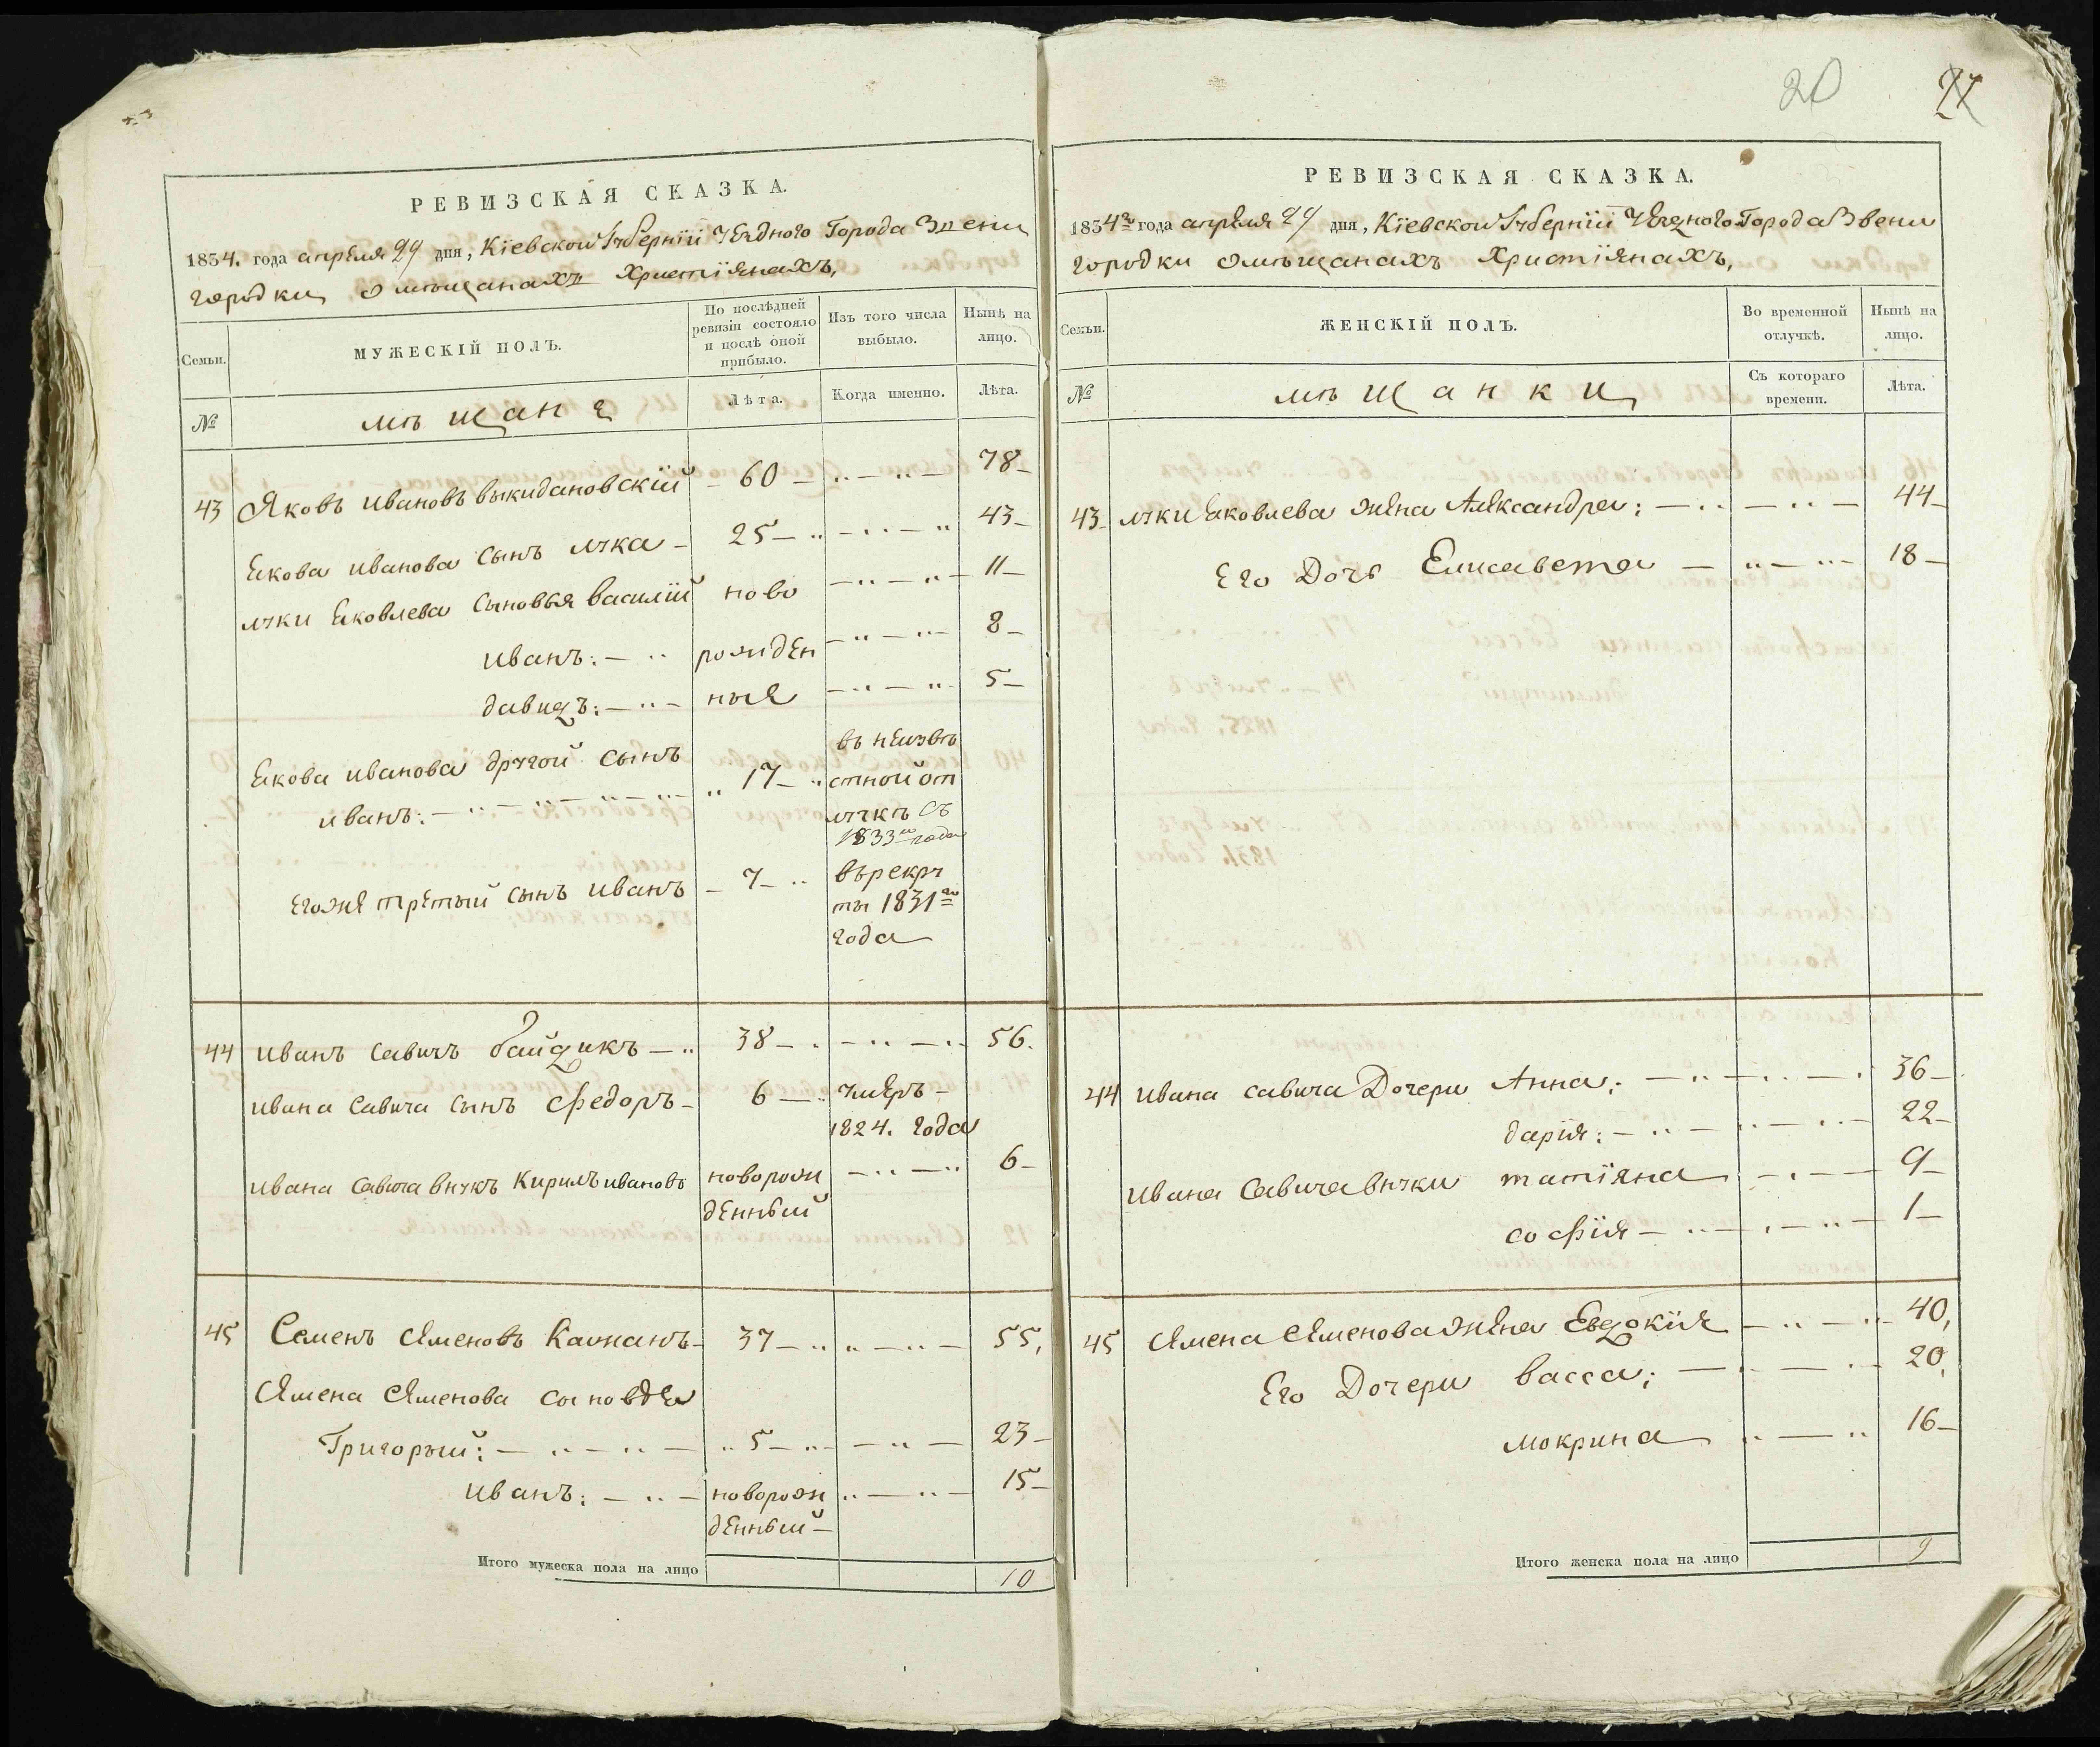 РЕВИЗСКАЯ СКАЗКА.
1834. года апреля 29 дня, Кіевской Губерніи Уезднаго Города Звени
городки о мѣщанахъ Христіянахъ,
Семьи. МУЖЕСКІЙ ПОЛЪ. По послѣдней ревизіи состояло и послѣ оной прибыло. Изъ того числа выбыло. Нынѣ на лицо.
№ мѣщане Лѣта. Когда именно. Лѣта.
43 Яковъ Ивановъ Выкидановскій 60 78
Якова Иванова сынъ Лука 25 43
Луки Яковлева сыновья Василій ново 11
Иванъ: рожден 8
Давидъ: ные 5
Якова Иванова другой сынъ
Иванъ: 17
въ неизвѣ
стной от
лучкѣ съ
1833го года
Егоже третый сынъ Иванъ 7 въ рекру
ты 1831го
года
44 Иванъ Савичъ Байдикъ 38 56.
Ивана Савича сынъ Федоръ 6 умеръ
1824. года
Ивана Савича внукъ Кирилъ Ивановъ новорож 6
денный
45 Семенъ Семеновъ 37 55,
Семена Семенова сыновья
Григорый: 5 23
Иванъ: новорож 15
денный
Итого мужеска пола на лицо 10
20
РЕВИЗСКАЯ СКАЗКА.
1834го года апреля 29 дня, Кіевской Губерніи Уезднаго Города Звени
городки о мѣщанахъ Христіянахъ,
Семьи. ЖЕНСКІЙ ПОЛЪ. Во временной отлучкѣ. Нынѣ на лицо.
№ мѣщанки Съ котораго времени. Лѣта.
43 Луки Яковлева жена Александра: 44
Его Дочь Елисавета 18
44 Ивана Савича Дочери Анна: 36
Дарія: 22
Ивана Савича внуки Татіяна 9
Софія 1
45 Семена Семенова жена Евдокія 40,
Его Дочери Васса: 20,
Мокрина 16
Итого женска пола на лицо 9